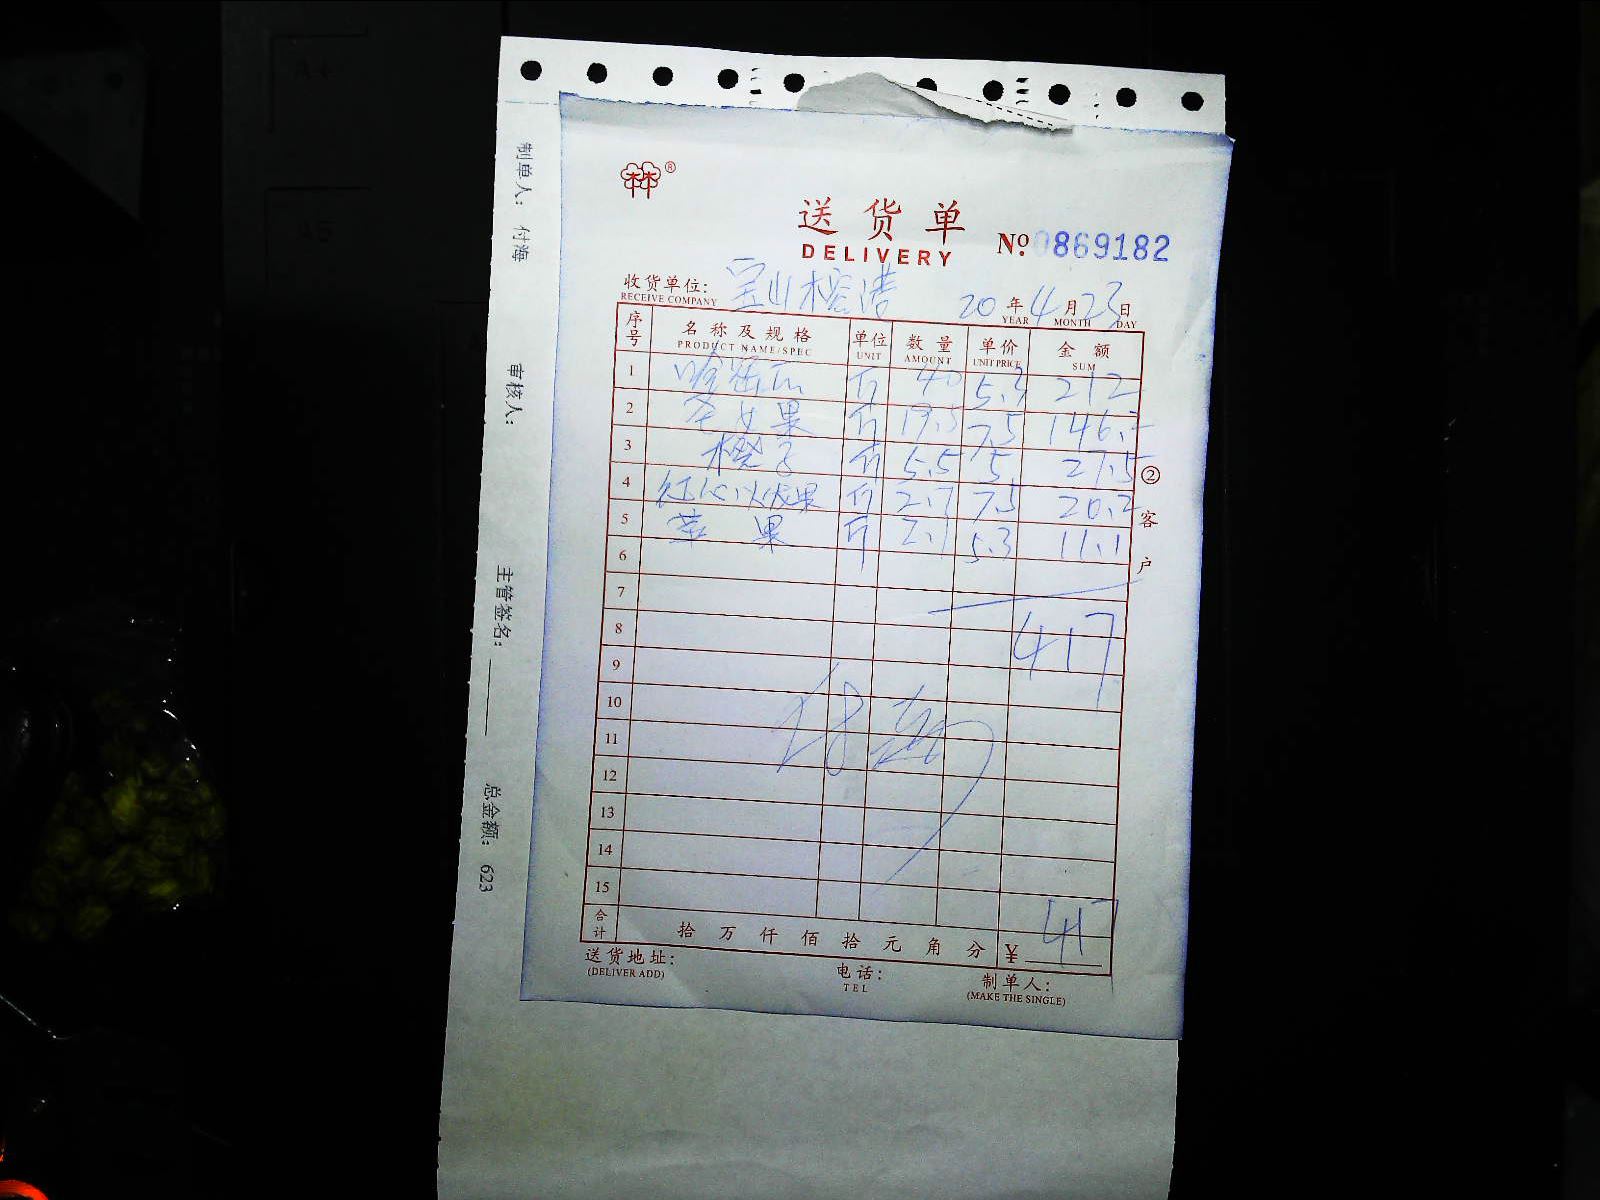 制单人： 付海
审核人：
主管签名：
总金额： 623
®
送货单
DELIVERY
No 0869182
收货单位：
RECEIVE COMPANY
宝山
20 年 4 月 23 日
YEAR MONTH DAY
序号 名称及规格 单位 数量 单价 金额
PRODUCT NAME/SPEC UNIT AMOUNT UNIT PRICE SUM
1 哈密瓜 斤 40 5.3 212
2 圣女果 斤 19.5 7.5 146.2
3 橙子 斤 5.5 5 27.5
4 红心火龙果 斤 2.7 7.5 20.2
5 苹果 斤 2.1 5.3 11.1
6
7
8 417
9
10
11
12
13
14
15
合计 拾 万 仟 佰 拾 元 角 分 ¥ 417
② 客户
送货地址： 电话： 制单人：
(DELIVER ADD) TEL (MAKE THE SINGLE)